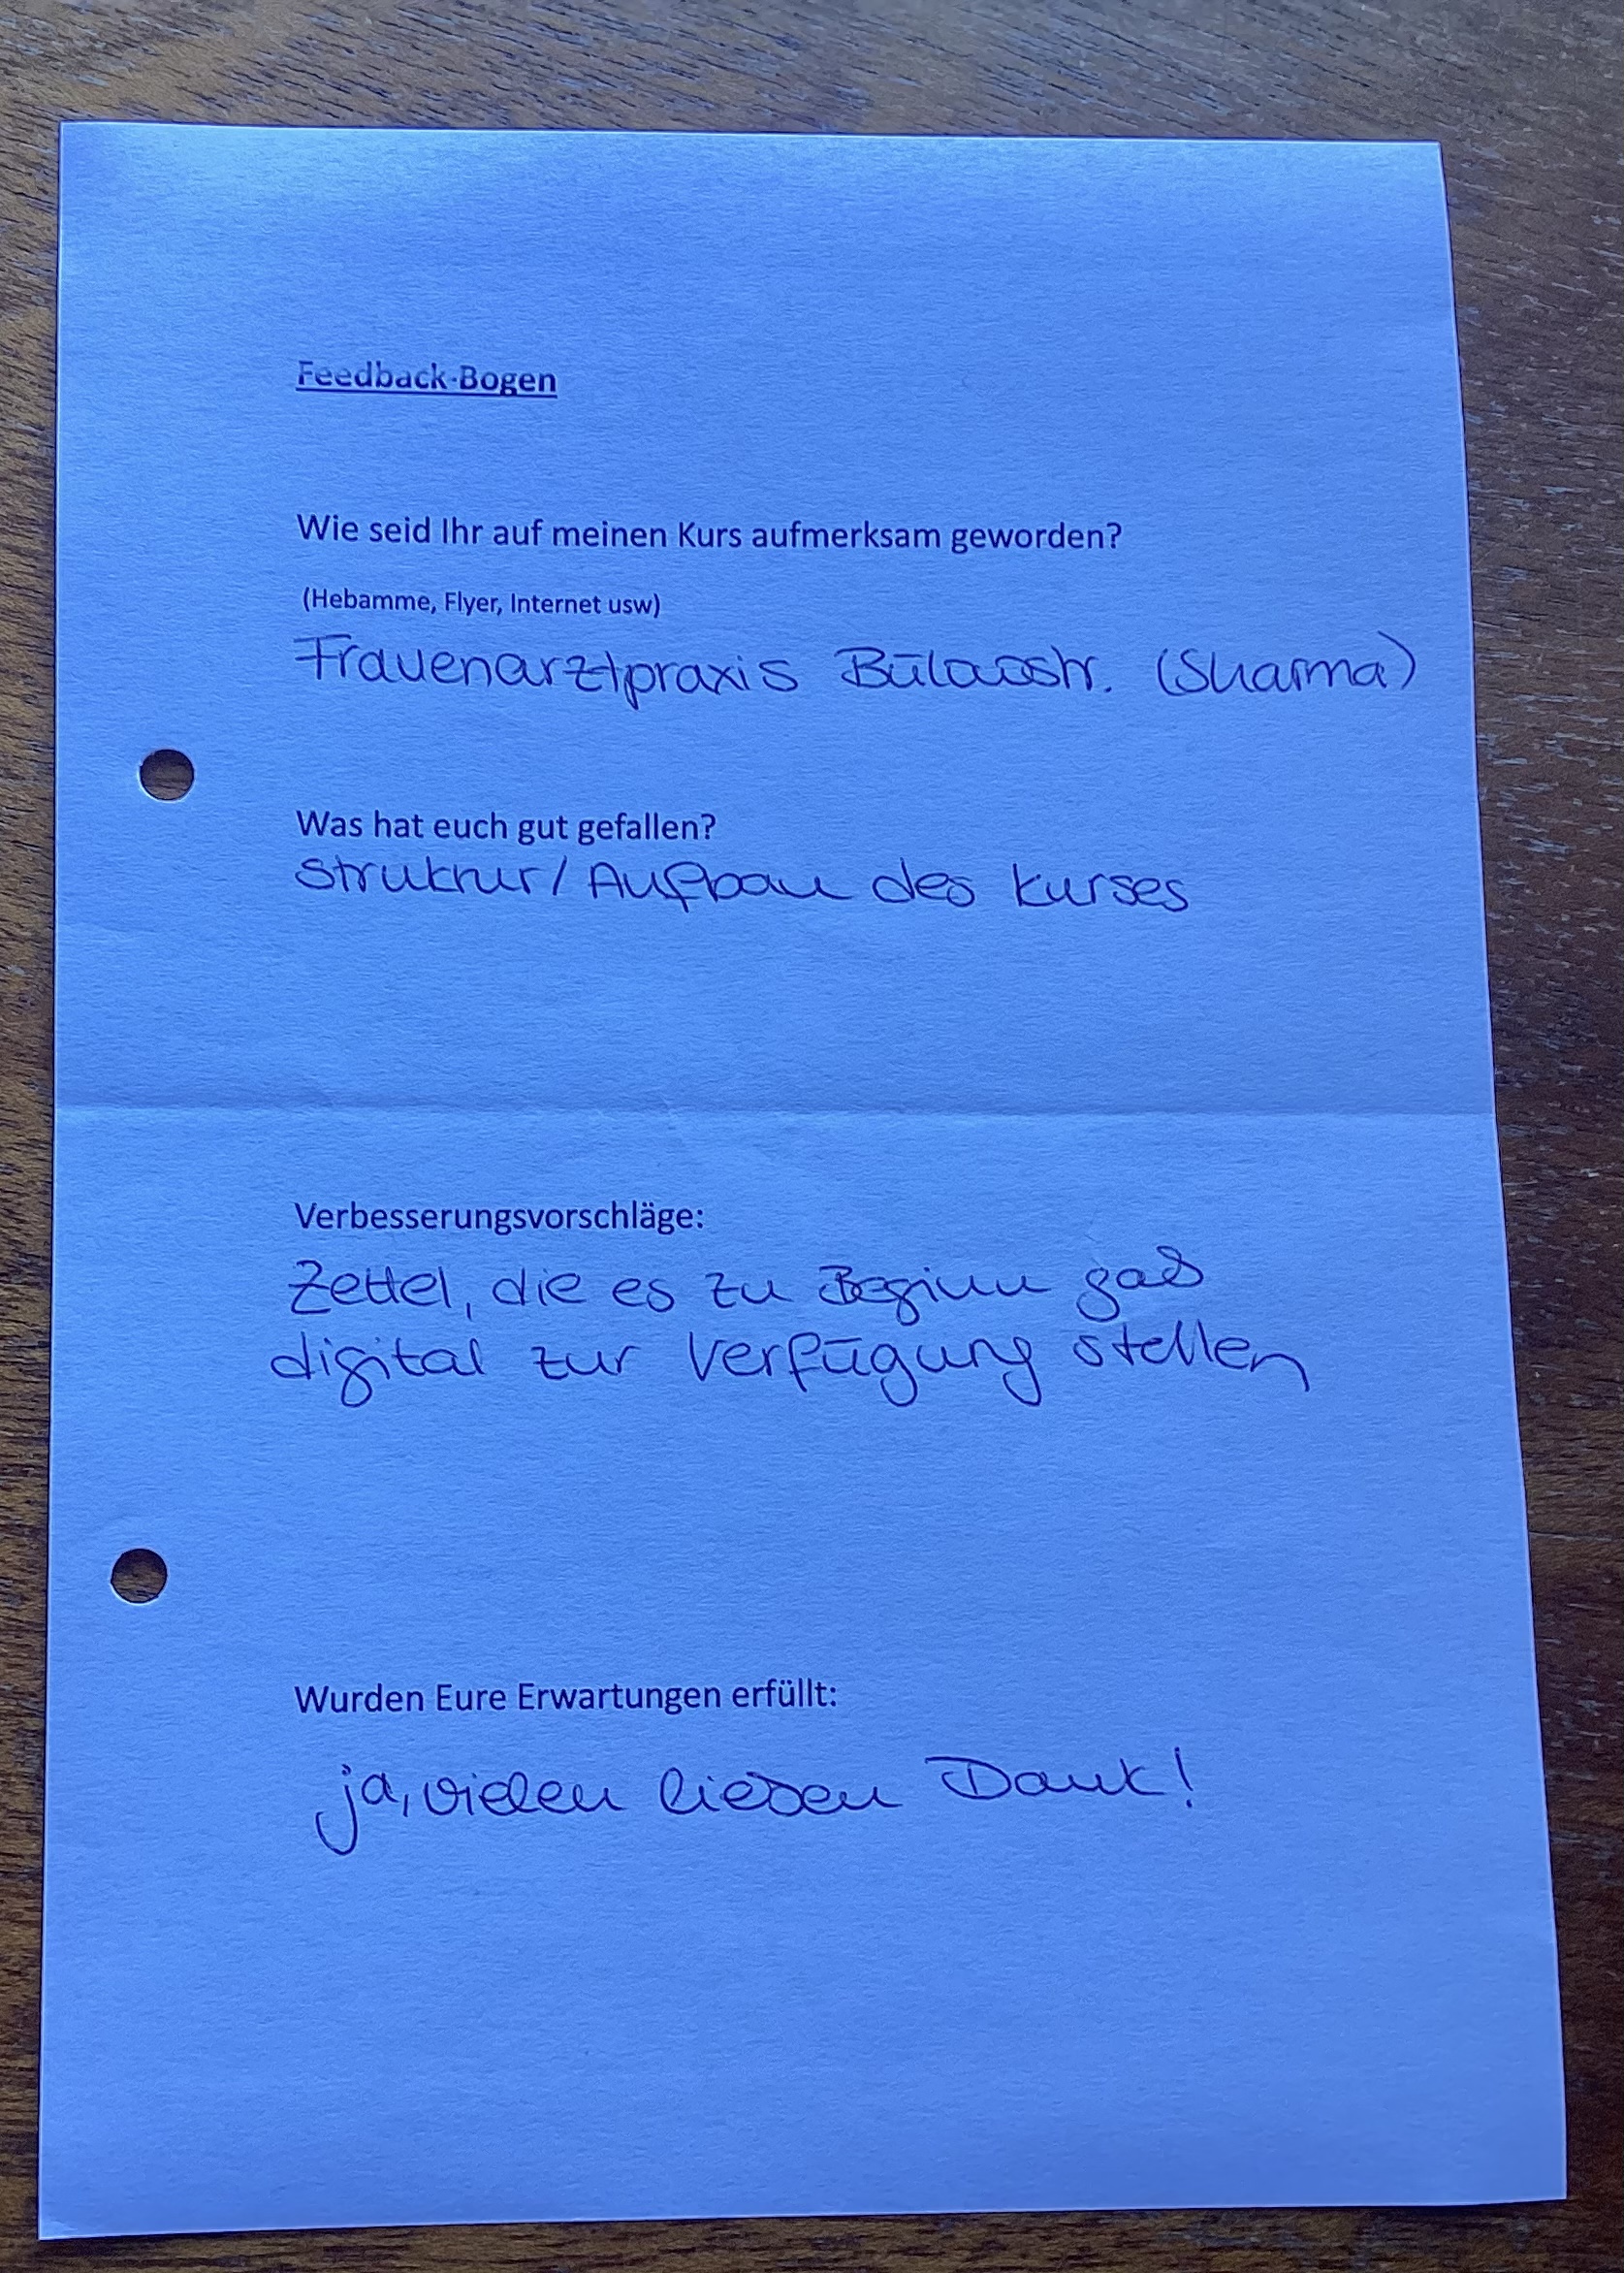 Feedback-Bogen
Wie seid Ihr auf meinen Kurs aufmerksam geworden?
(Hebamme, Flyer, Internet usw)
Frauenarztpraxis Bülowstr. (Sharma)
Was hat euch gut gefallen?
Struktur / Aufbau des Kurses
Verbesserungsvorschläge:
Zettel, die es zu Beginn gab
digital zur Verfügung stellen
Wurden Eure Erwartungen erfüllt:
ja, vielen lieben Dank!